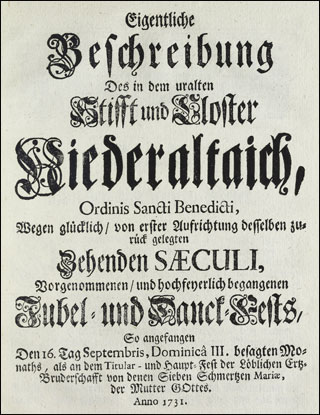 Eigentliche
Beschreibung
Des in dem uralten
Stifft und Closter
Niederaltaich,
Ordinis Sancti Benedicti,
Wegen glücklich / von erster Aufrichtung desselben zu-
rück gelegten
Zehenden SÆCULI,
Vorgenommenen / und hochfeyerlich begangenen
Jubel- und Danck-Fests,
So angefangen
Den 16. Tag Septembris, Dominicâ III. besagten Mo-
naths, als an dem Titular- und Haupt-Fest der Löblichen Ertz-
Bruderschafft von denen Sieben Schmertzen Mariæ,
der Mutter GOttes.
Anno 1731.